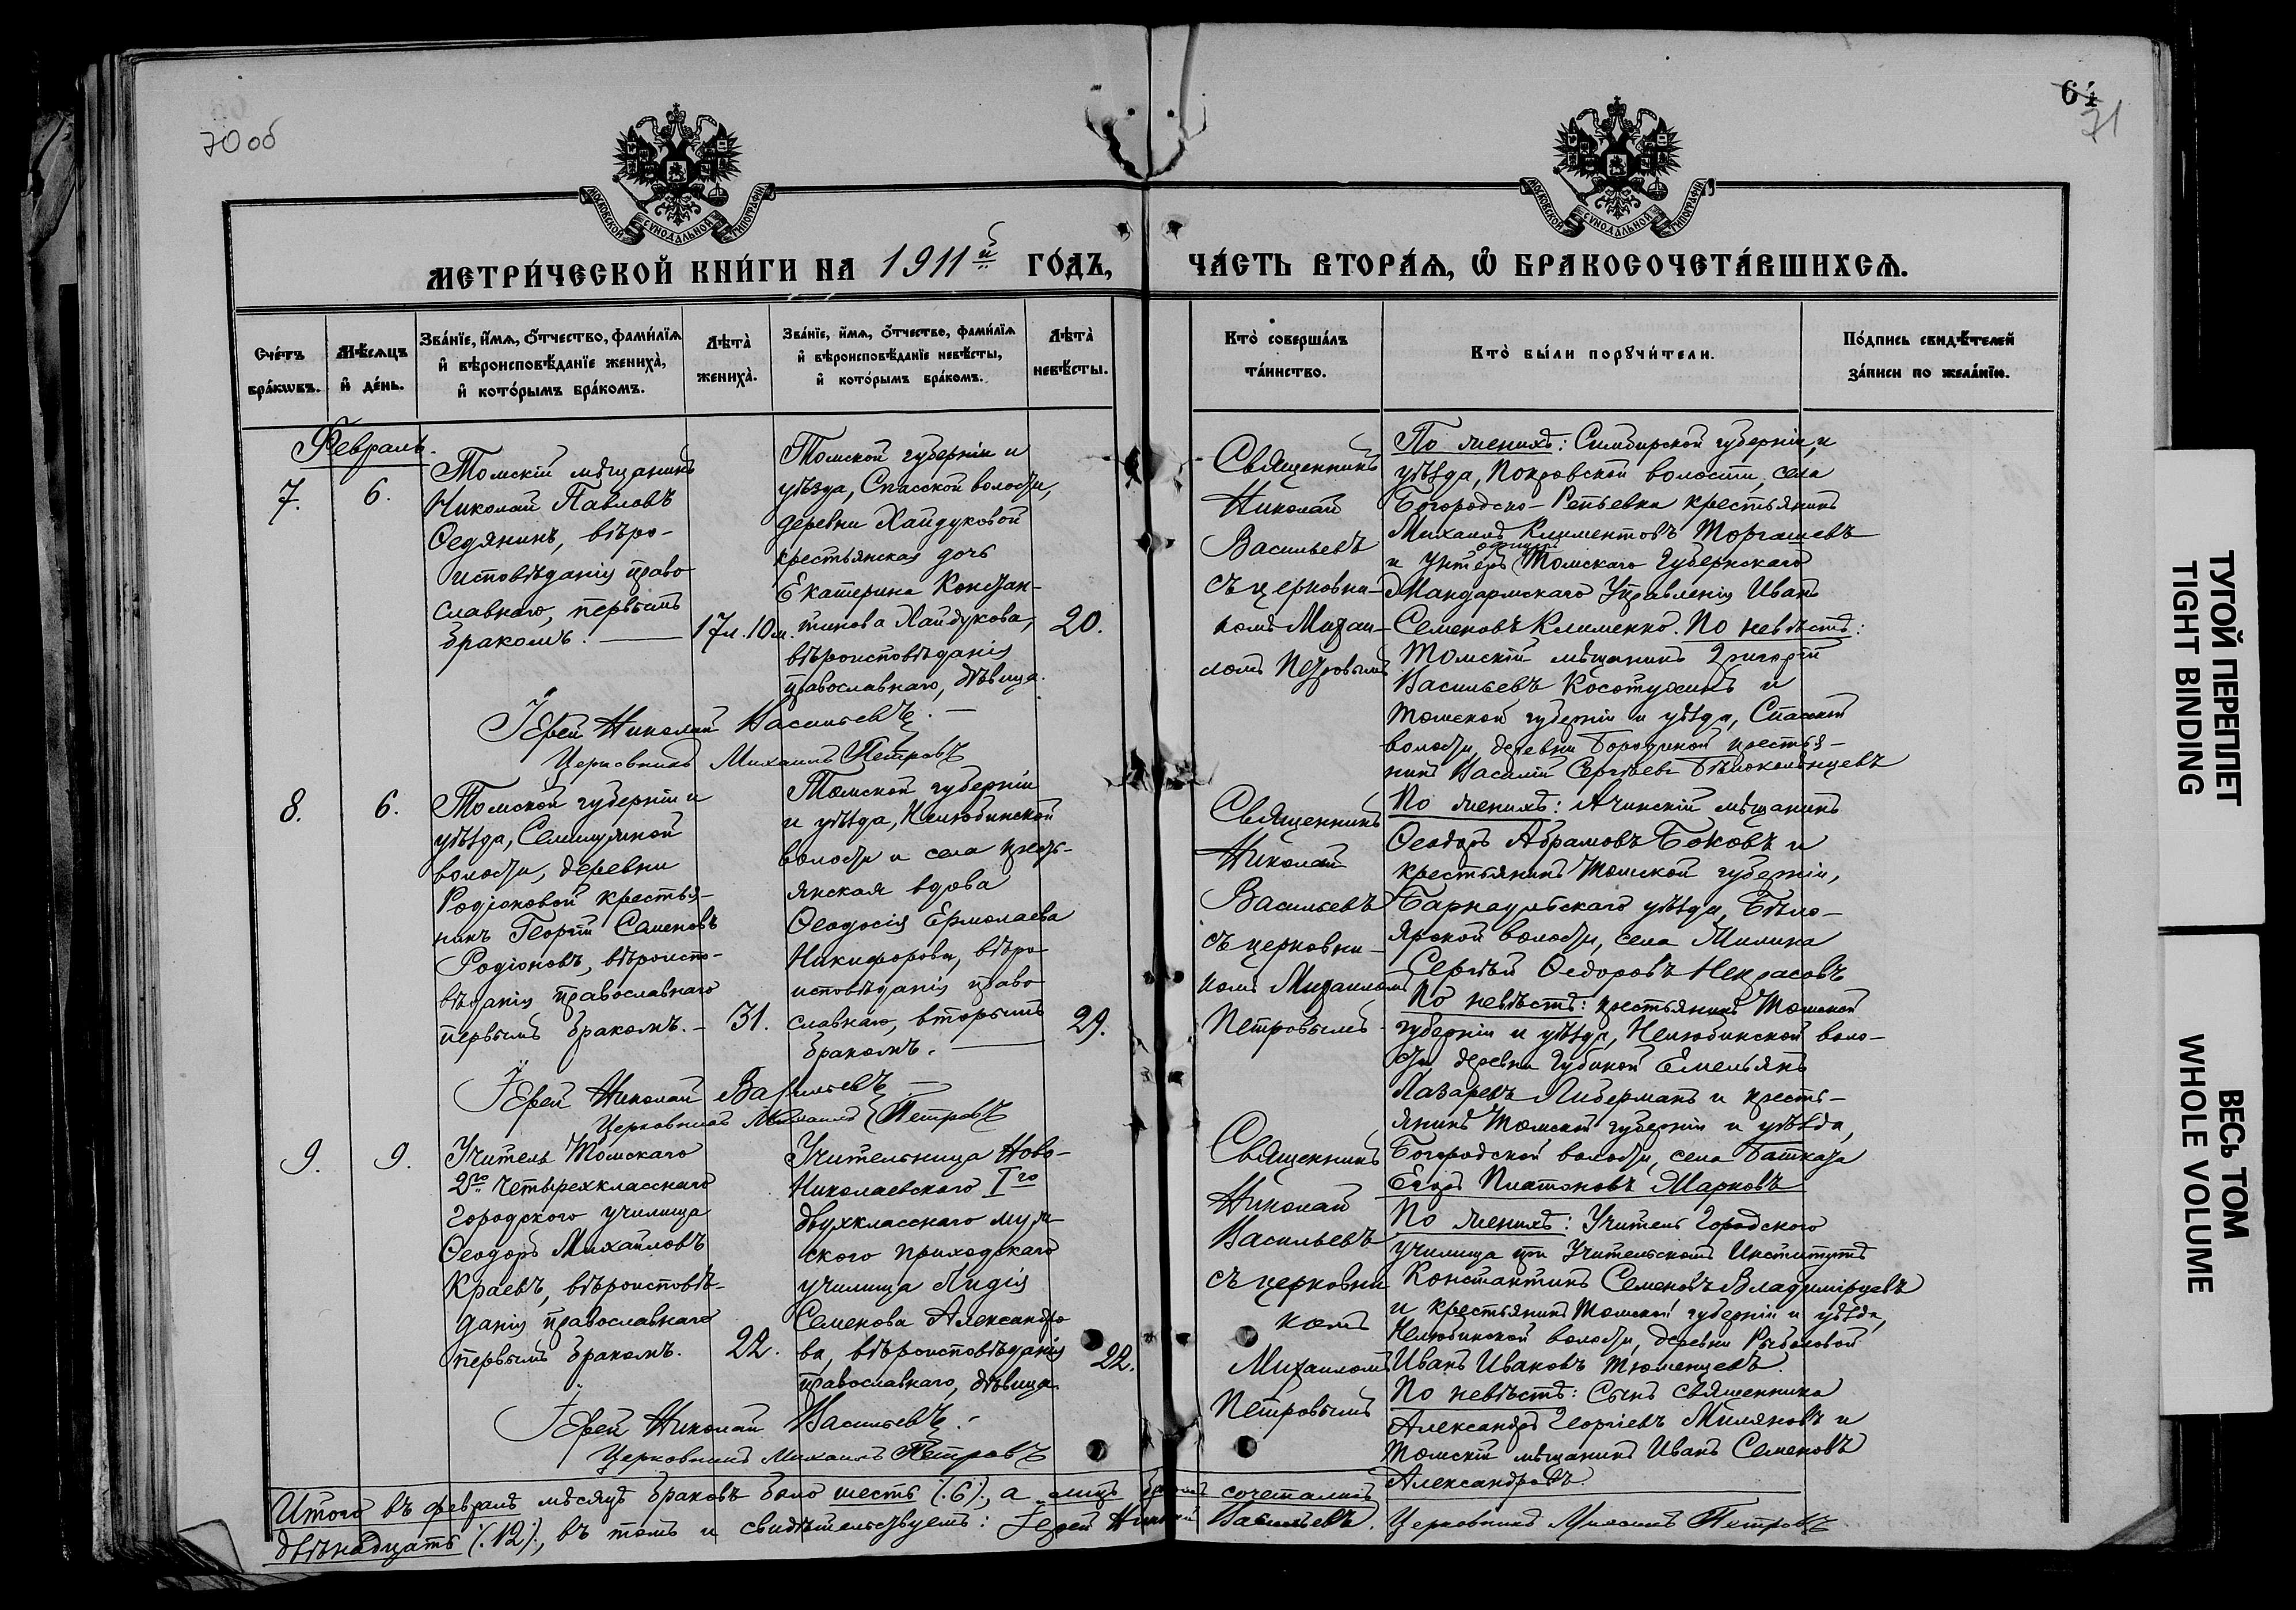 70 об
64
71
МОСКОВСКОЙ СѴНОДАЛЬНОЙ ТИПОГРАФІИ
МОСКОВСКОЙ СѴНОДАЛЬНОЙ ТИПОГРАФІИ
МЕТРИ́ЧЕСКОЙ КНИ́ГИ НА 1911й ГО́ДЪ,
ЧА́СТЬ ВТОРА́Ѧ, Ѽ БРАКОСОЧЕТА́ВШИХСѦ.
Сче́тъ бра́кѡвъ.
Мѣ́сѧцъ и҆ де́нь.
Зва́нїе, и҆́мѧ, ѻ҆́тчество, фами́лїѧ и҆ вѣроисповѣ́данїе жениха̀, и҆ кото́рымъ бра́комъ.
Лѣта̀ жениха̀.
Зва́нїе, и҆́мѧ, ѻ҆́тчество, фами́лїѧ и҆ вѣроисповѣ́данїе невѣ́сты, и҆ кото́рымъ бра́комъ.
Лѣта̀ невѣ́сты.
Кто̀ соверша́лъ та́инство.
Кто̀ бы́ли порꙋчи́тели.
По́дпись свидѣ́телей за́писи по жела́нїю.
Февраль.
7.
6.
Томскій мѣщанинъ
Николай Павловъ
Седянинъ, вѣро-
исповѣданія право
славнаго, первымъ
бракомъ.
17л. 10м.
Томской губерніи и
уѣзда, Спасской волости,
деревни Хайдуковой
крестьянская дочь
Екатерина Констан-
тинова Хайдукова,
вѣроисповѣданія
православнаго, дѣвица.
20.
Іерей Николай Васильевъ.
Церковникъ Михаилъ Петровъ
Священникъ
Николай
Васильевъ
съ церковни-
комъ Михаи-
ломъ Петровымъ
По женихѣ: Симбирской губерніи, и
уѣзда, Покровской волости, села
Богородско-Репьевки крестьянинъ
Михаилъ Климентовъ Торгашевъ
и Унтеръ офицеръ Томскаго Губернскаго
Жандармскаго Управленія Иванъ
Семеновъ Клименко. По невѣстѣ:
Томскій мѣщанинъ Григорій
Васильевъ Косотухинъ и
Томской губерніи и уѣзда, Спасской
волости, деревни Бородиной крестья-
нинъ Василій Сергѣевъ Бѣлокопытцевъ
8.
6.
Томской губерніи и
уѣзда, Семилужной
волости, деревни
Родіоновой крестья-
нинъ Георгій Семеновъ
Родіоновъ, вѣроиспо-
вѣданія православнаго
первымъ бракомъ.
31.
Томской губерніи
и уѣзда, Нелюбинской
волости и села кресть-
янская вдова
Ѳеодосія Ермолаева
Никифорова, вѣро
исповѣданія право
славнаго, вторымъ
бракомъ.
29.
Іерей Николай Васильевъ
Церковникъ Михаилъ Петровъ
Священникъ
Николай
Васильевъ
съ церковни-
комъ Михаиломъ
Петровымъ
По женихѣ: Ачинскій мѣщанинъ
Ѳеодоръ Абрамовъ Боковъ и
крестьянинъ Томской губерніи,
Барнаульскаго уѣзда, Бѣло-
ярской волости, села Милина
Сергѣй Ѳедоровъ Некрасовъ
По невѣстѣ: крестьянинъ Томской
губерніи и уѣзда, Нелюбинской воло-
сти деревни Губиной Емельянъ
Лазаревъ Либерманъ и кресть-
янинъ Томской губерніи и уѣзда,
Богородской волости, села Батката
Егоръ Платоновъ Марковъ
9.
9.
Учитель Томскаго
2го четырехкласснаго
городского училища
Ѳеодоръ Михайловъ
Краевъ, вѣроисповѣ-
данія православнаго
первымъ бракомъ.
22.
Учительница Ново-
Николаевскаго Iго
двухкласснаго муж-
ского приходскаго
училища Лидія
Семенова Александро
ва, вѣроисповѣданія
православнаго, дѣвица.
22.
Іерей Николай Васильевъ.
Церковникъ Михаилъ Петровъ
Священникъ
Николай
Васильевъ
съ церковни
комъ
Михаиломъ
Петровымъ
По женихѣ: Учитель Городского
училища при Учительскомъ Институтѣ
Константинъ Семеновъ Владимірцевъ
и крестьянинъ Томской губерніи и уѣзда,
Нелюбинской волости, деревни Рыбаловой
Иванъ Ивановъ Тюменцевъ.
По невѣстѣ: Сынъ священника
Александръ Георгіевъ Миляновъ и
Томскій мѣщанинъ Иванъ Семеновъ
Александровъ.
Итого въ февралѣ мѣсяцѣ браковъ было шесть (:6:), а лицъ бракомъ сочеталось
двѣнадцать (:12:), въ томъ и свидѣтельствуетъ: Іерей Николай Васильевъ. Церковникъ Михаилъ Петровъ
ТУГОЙ ПЕРЕПЛЕТ
TIGHT BINDING
ВЕСЬ ТОМ
WHOLE VOLUME